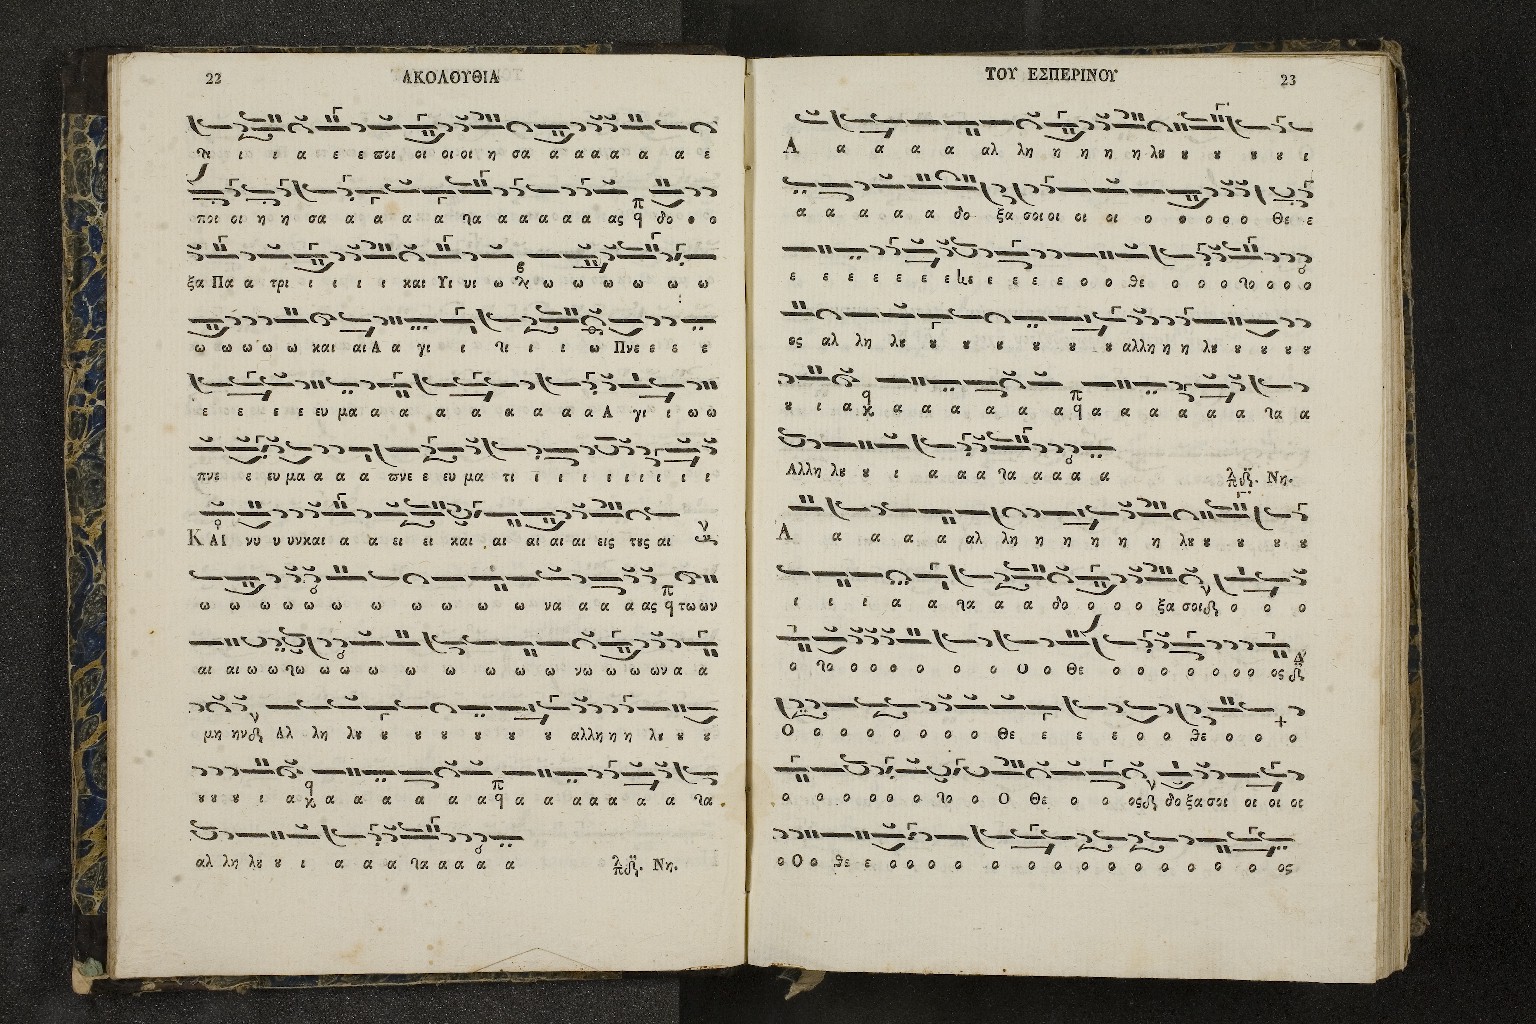 22 ΑΚΟΛΟΥΘΙΑ
ι ι α ε ε ποι οι οι οι οι η σα α α α α α α ε
ποι οι η η σα α α α α α τα α α α α α ας δο ο ο
ξα Πα α τρι ι ι ι ι και Υι υι ω ω ω ω ω ω ω
ω ω ω ω ω και αι Α α γι ι τι ι ι ω Πνε ε ε ε
ε ε ε ε ε ευ μα α α α α α α α α Α γι ι ω ω
πνε ε ευ μα α α α πνε ε ευ μα τι ι ι ι ι ι ι ι
ΚΑΙ νυ υ υν και α α ει ει και αι αι αι αι εις τȣς αι
ω ω ω ω ω ω ω ω ω ω ω να α α α ας των ων
αι αι ω ω τω ω ω ω ω ω ω ω ω νω ω ω ων α α
μη ην Αλ λη λȣ ȣ ȣ ȣ ȣ ȣ ȣ αλλη η η λȣ ȣ ȣ
ȣ ȣ ȣ ι α α α α α α α α α α α α α α α τα
αλ λη λȣ ȣ ι α α α τα α α α α Νη.
ΤΟΥ ΕΣΠΕΡΙΝΟΥ 23
Α α α α α αλ λη η η η η λȣ ȣ ȣ ȣ ȣ ι
α α α α α δο ξα σοι οι οι οι ο ο ο ο ο Θε ε
ε ε ε ε ε ε ε ε ε ε ε ο ο θε ο ο ο το ο ο ο
ος αλ λη λȣ ȣ ȣ ȣ ȣ ȣ ȣ αλλη η η λȣ ȣ ȣ ȣ ȣ
ȣ ι α α α α α α α α α α α α α α τα α
Αλλη λȣ ȣ ι α α α τα α α α α Νη.
Α α α α α αλ λη η η η η η λȣ ȣ ȣ ȣ ȣ
ι ι ι α α τα α α δο ο ο ο ξα σοι ο ο ο
ο το ο ο ο ο ο ο ο Ο ο Θε ο ο ο ο ο ο ο ος
Ο ο ο ο ο ο ο ο Θε ε ε ε ο ο θε ο ο ο
ο ο ο ο ο ο το ο Ο Θε ο ο ος δο ξα σοι οι οι οι
ο Ο ο θε ε ο ο ο ο ο ο ο ο ο ο ο ο ο ος